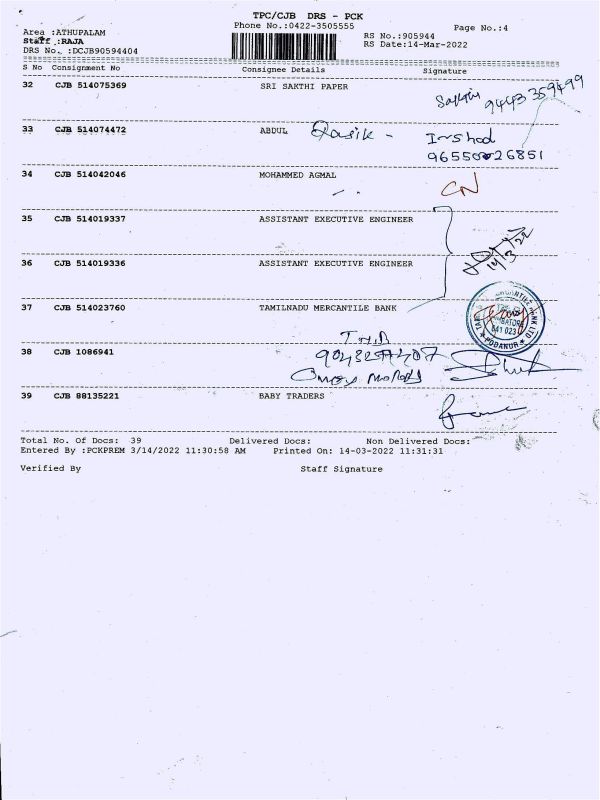 TPC/CJB DRS - PCK
Phone No.:0422-3505555
Page No.:4
Area :ATHUPALAM
Staff :RAJA
DRS No. :DCJB90594404
RS No.:905944
RS Date:14-Mar-2022
S No Consignment No Consignee Details Signature
32 CJB 514075369 SRI SAKTHI PAPER
Sakthi 9443359499
33 CJB 514074472 ABDUL Rasik - Irshad
96550026851
34 CJB 514042046 MOHAMMED AGMAL
CN
35 CJB 514019337 ASSISTANT EXECUTIVE ENGINEER
14/3/22
36 CJB 514019336 ASSISTANT EXECUTIVE ENGINEER
37 CJB 514023760 TAMILNADU MERCANTILE BANK
641 023
PODANUR
38 CJB 1086941
39 CJB 88135221 BABY TRADERS
Total No. Of Docs: 39 Delivered Docs: Non Delivered Docs:
Entered By :PCKPREM 3/14/2022 11:30:58 AM Printed On: 14-03-2022 11:31:31
Verified By Staff Signature